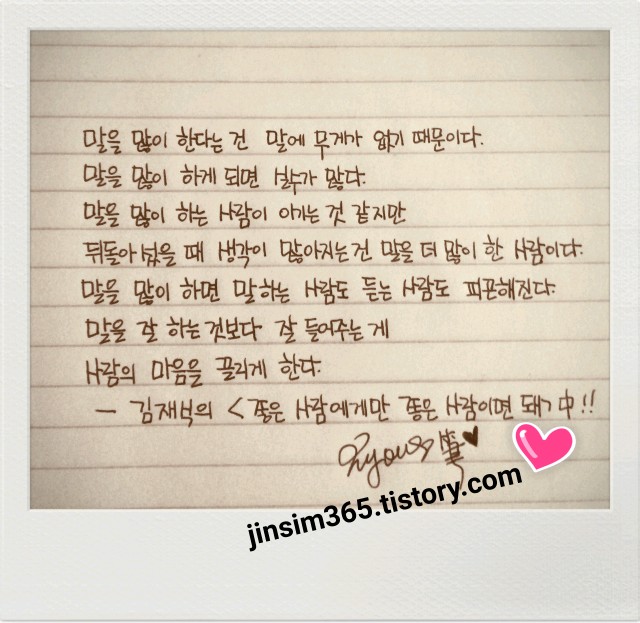 말을 많이 한다는 건 말에 무게가 없기 때문이다.
말을 많이 하게 되면 실수가 많다.
말을 많이 하는 사람이 이기는 것 같지만
뒤돌아 섰을 때 생각이 많아지는 건 말을 더 많이 한 사람이다.
말을 많이 하면 말하는 사람도 듣는 사람도 피곤해진다.
말을 잘 하는 것보다 잘 들어주는 게
사람의 마음을 끌리게 한다.
— 김재식의 < 좋은 사람에게만 좋은 사람이면 돼> 中!!
jinsim365.tistory.com